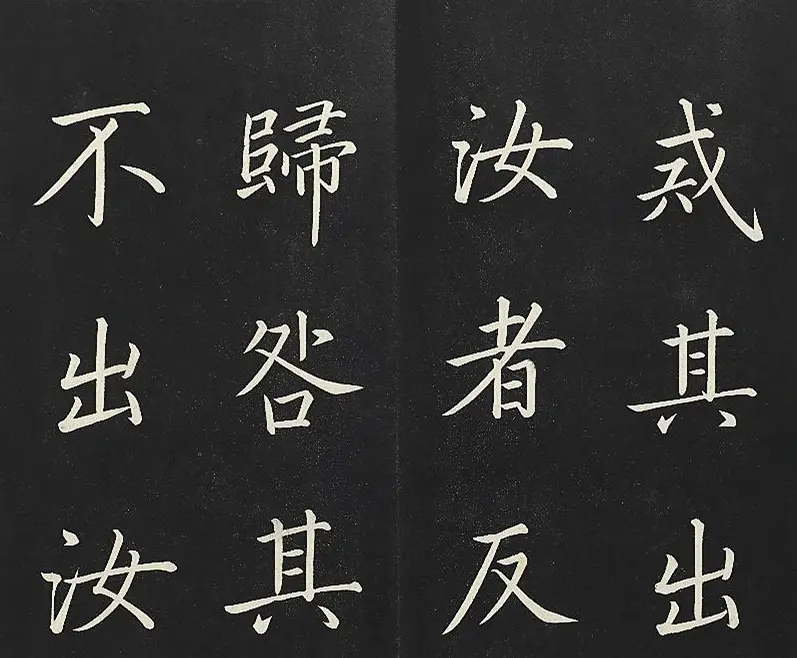 戒其出
汝者反
歸咎其
不出汝